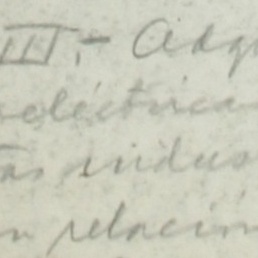 III.- Adq
eléctricas
as indus
n relación